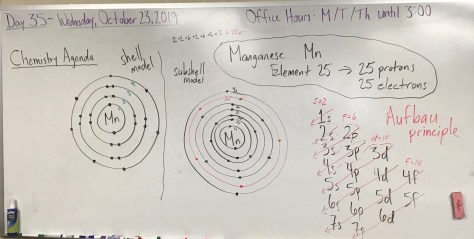 Day 35 - Wednesday, October 23, 2019
Office Hours: M/T/Th until 3:00
Chemistry Agenda
shell model
subshell model
Mn
Mn
Manganese Mn
Element 25 → 25 protons
25 electrons
Aufbau principle
s=2
p=6
1s
2s 2p
3s 3p 3d
4s 4p 4d 4f
5s 5p 5d 5f
6s 6p 6d
7s 7p